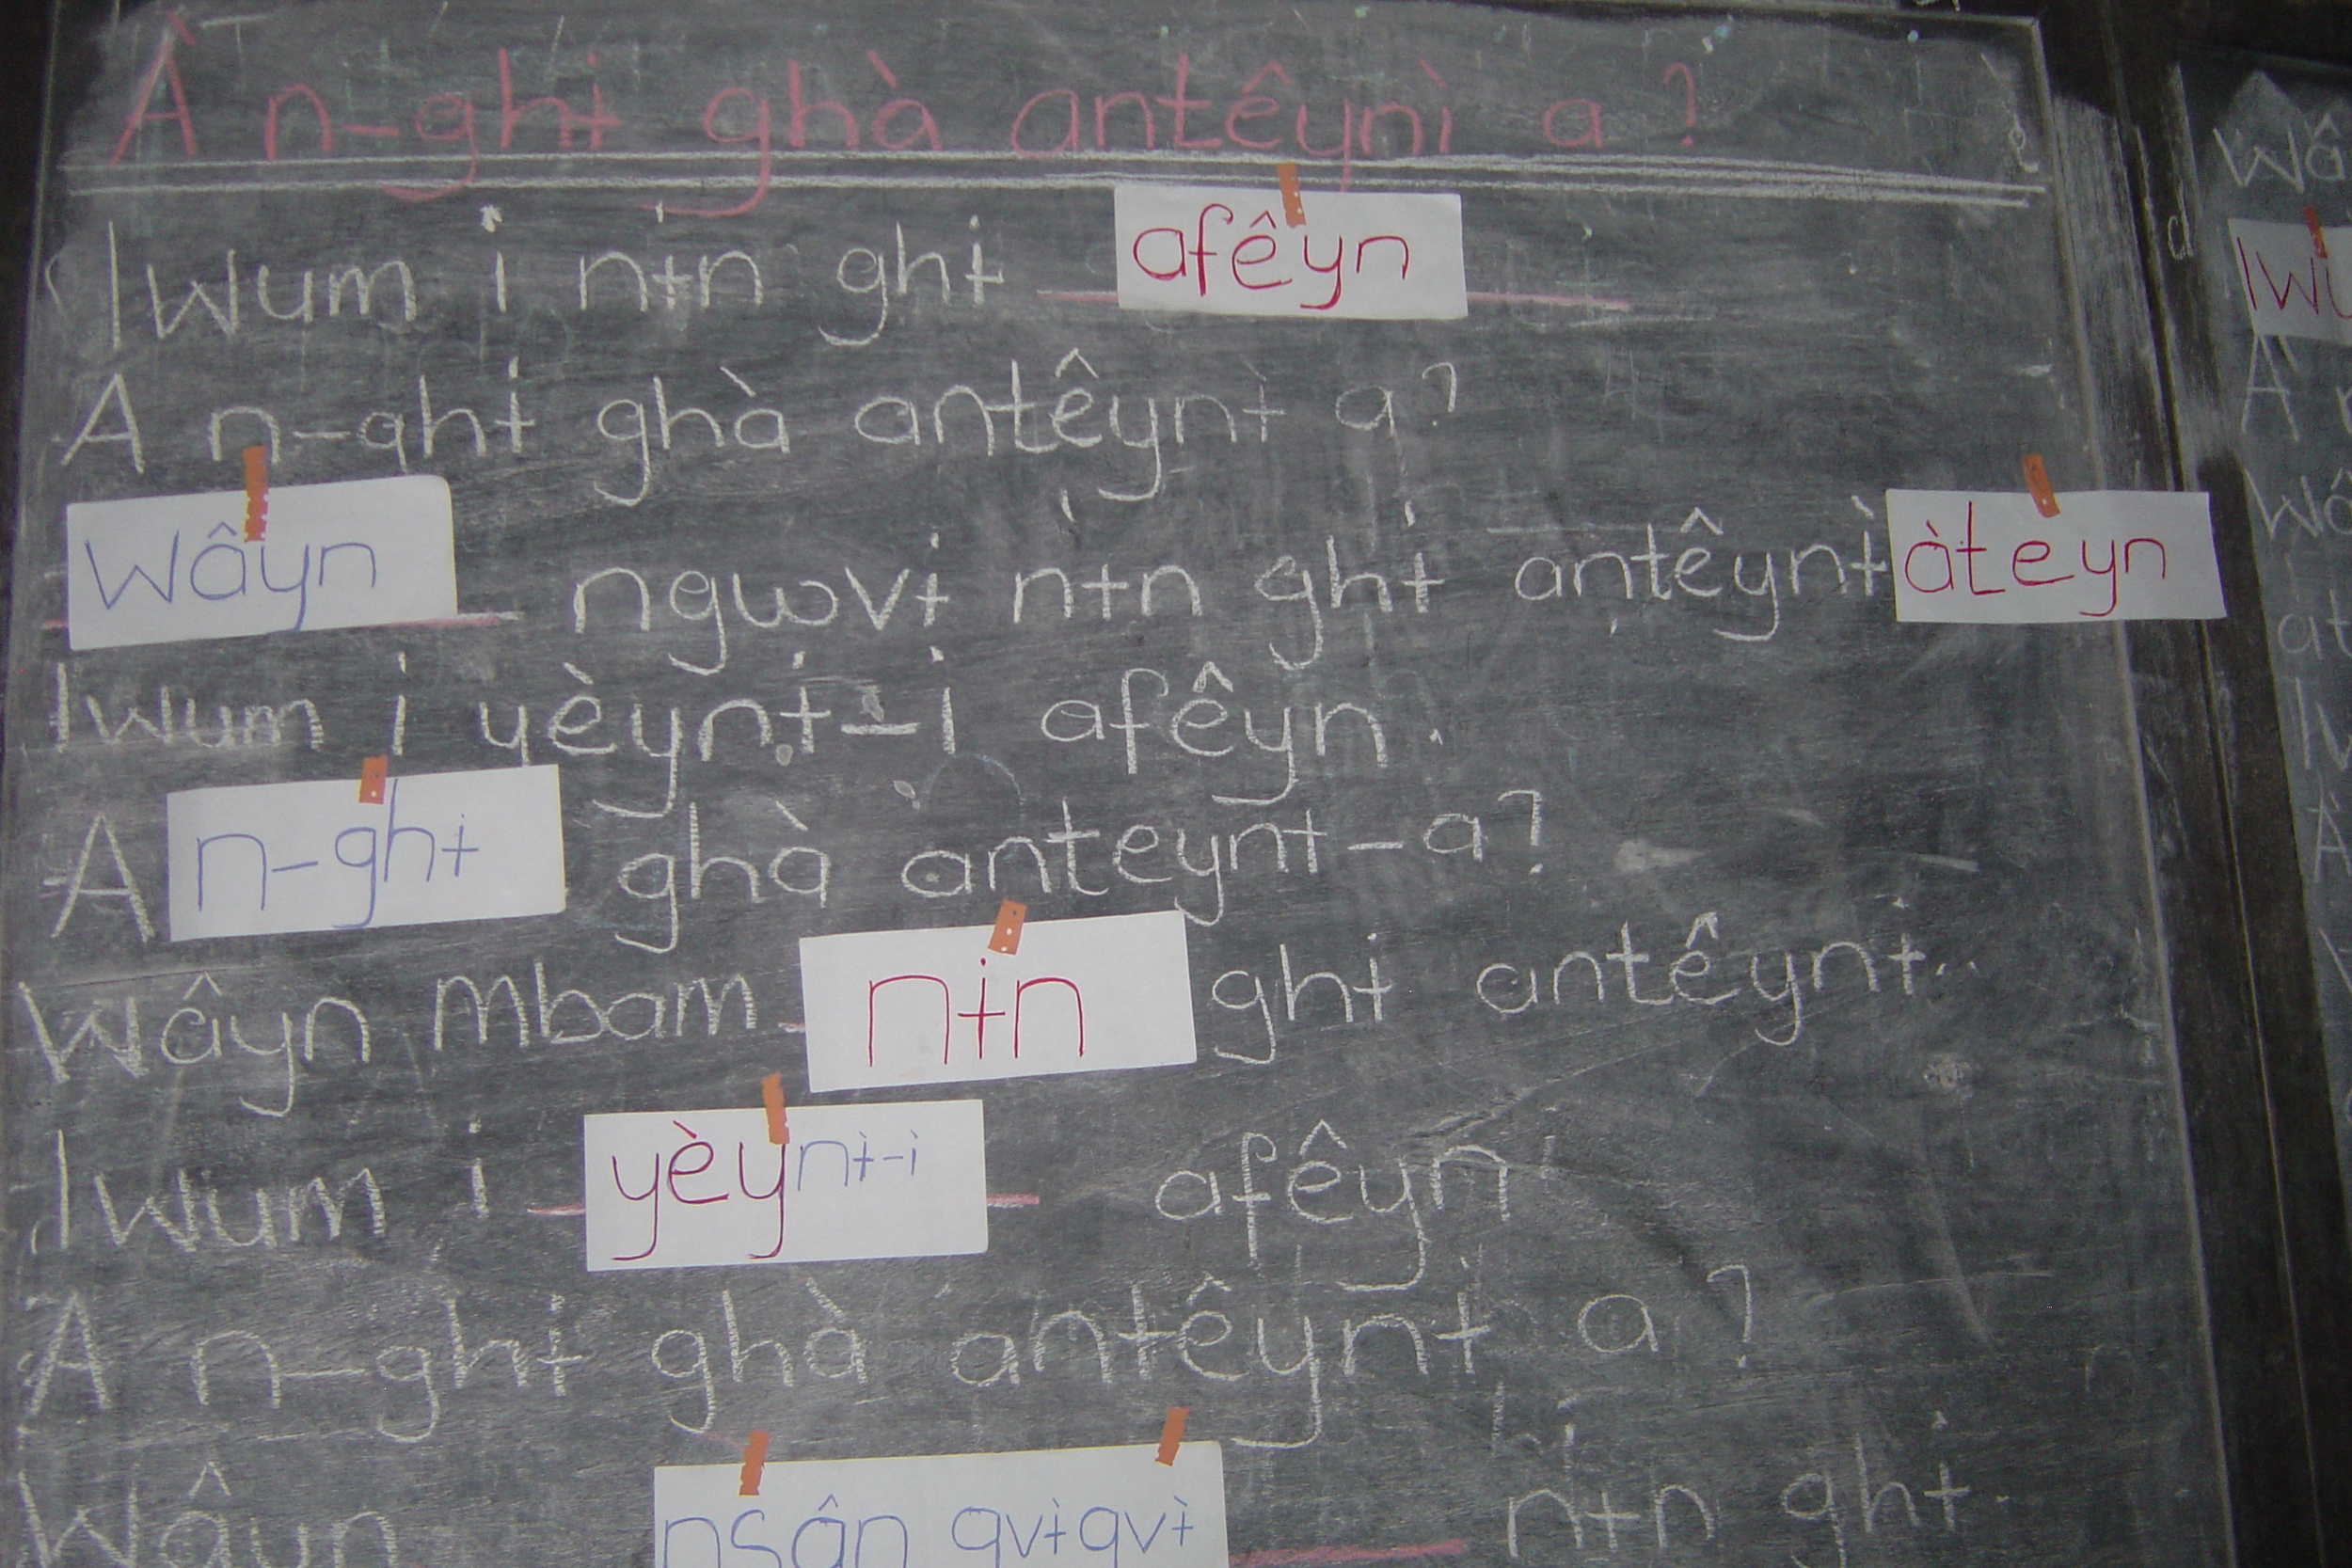 À n-ghɨ ghà antêynì a ?
Iwum i nɨn ghɨ afêyn
A n-ghɨ ghà antêynɨ a?
Wâyn ngwovɨ nɨn ghɨ antêynɨ àteyn
Iwum i yèynɨ-i afêyn.
A n-ghɨ ghà anteynɨ-a?
Wâyn mbam nɨn ghɨ antêynɨ..
Iwum i yèynɨ-ì afêyn
A n-ghɨ ghà antêynɨ a ?
Wâyn nsân gvɨgvɨ nɨn ghɨ